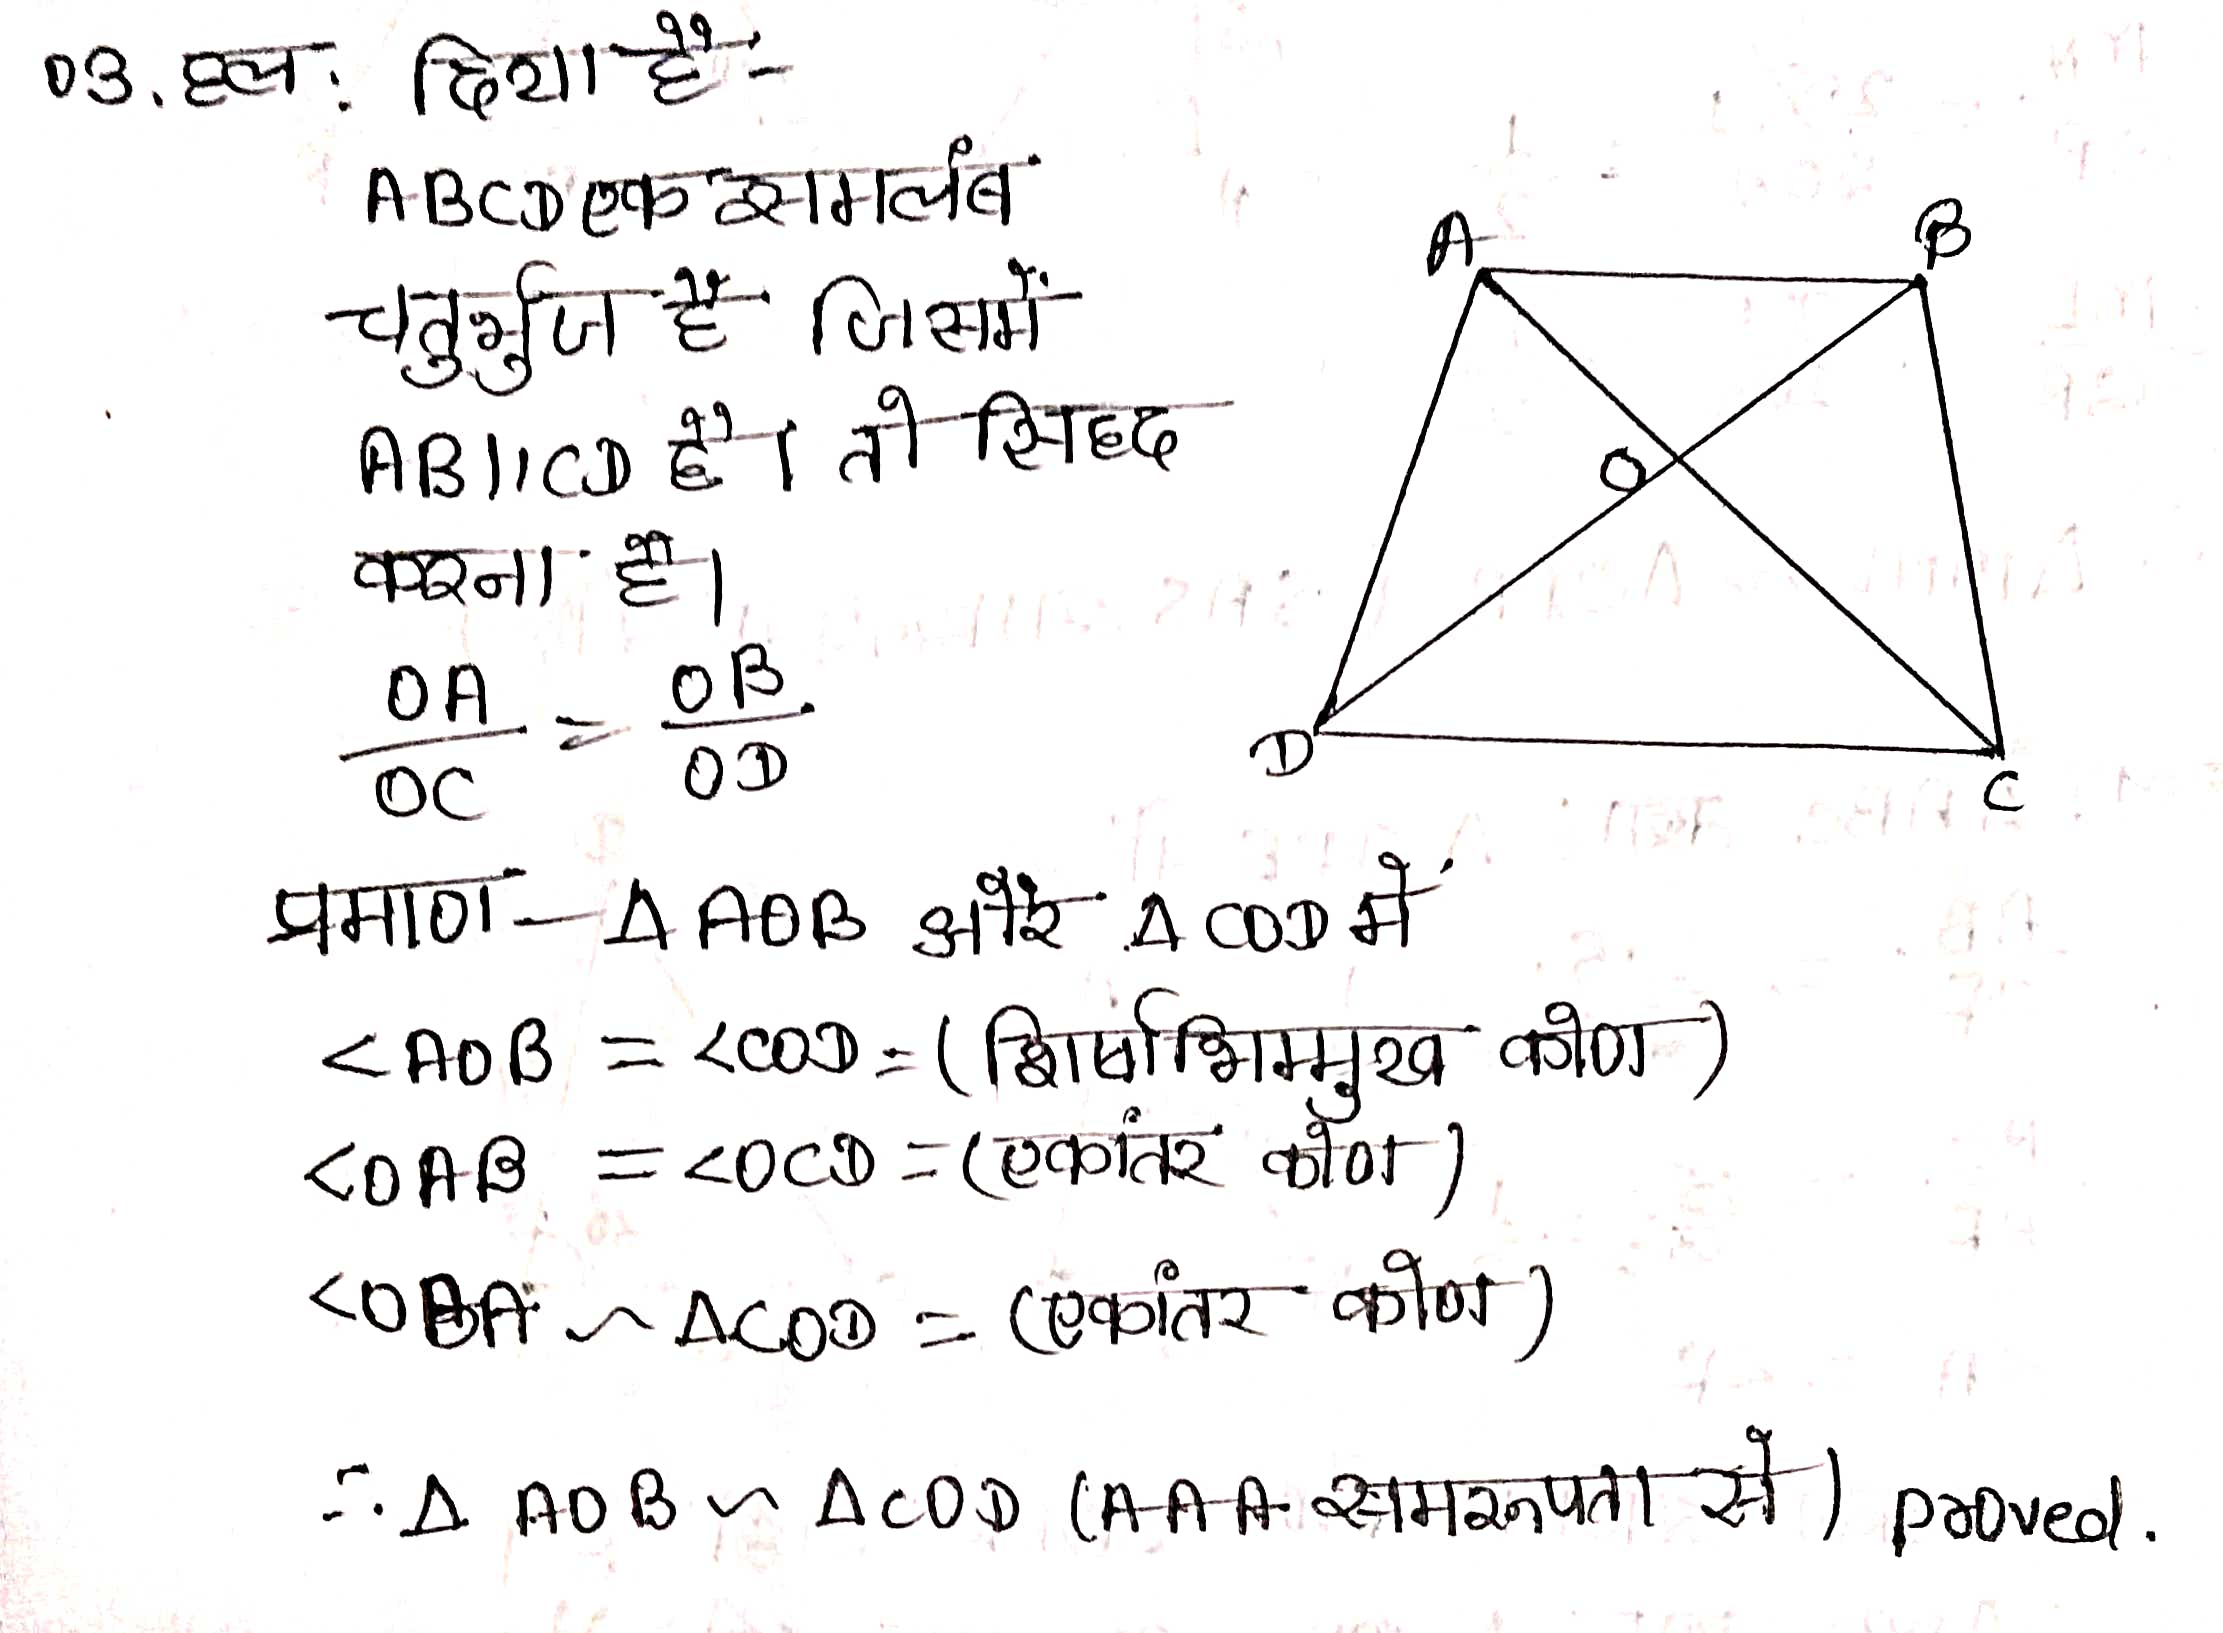 03. हल: दिया है -
ABCD एक समलंब
चतुर्भुज है जिसमें
AB||CD है। तो सिद्ध
करना है।
OA/OC = OB/OD
A
B
O
D
C
प्रमाण - Δ AOB और Δ COD में
<AOB = <COD = (शिर्षाभिम्मुख कोण)
<OAB = <OCD = (एकांतर कोण)
<OBA ~ ΔCOD = (एकांतर कोण)
∴ Δ AOB ~ ΔCOD (AAA समरूपता से) proved.